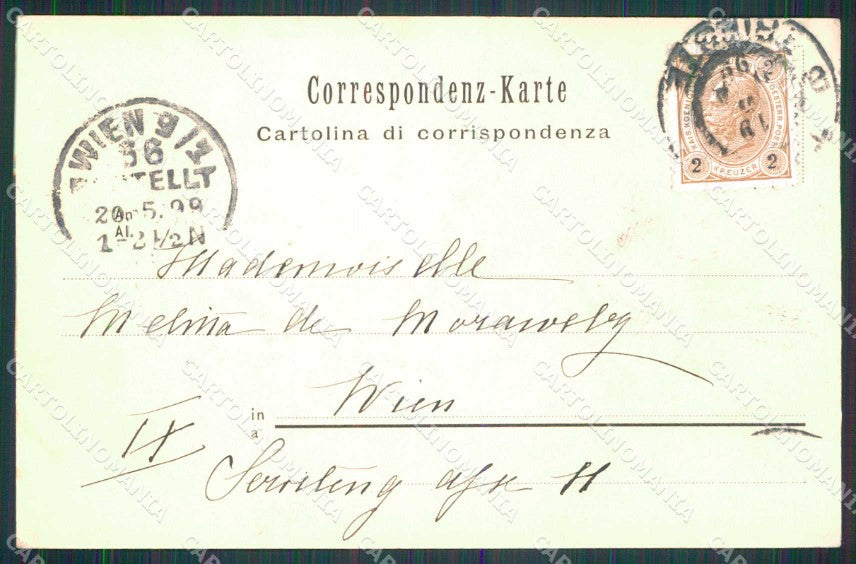 Correspondenz-Karte
Cartolina di corrispondenza
WIEN 9/1
56
BESTELLT
20. 5. 99
1-2 1/2 N
2 KREUZER 2
Mademoiselle
Melina de
Wien
in
a
IX
11
CARTOLINOMANIA